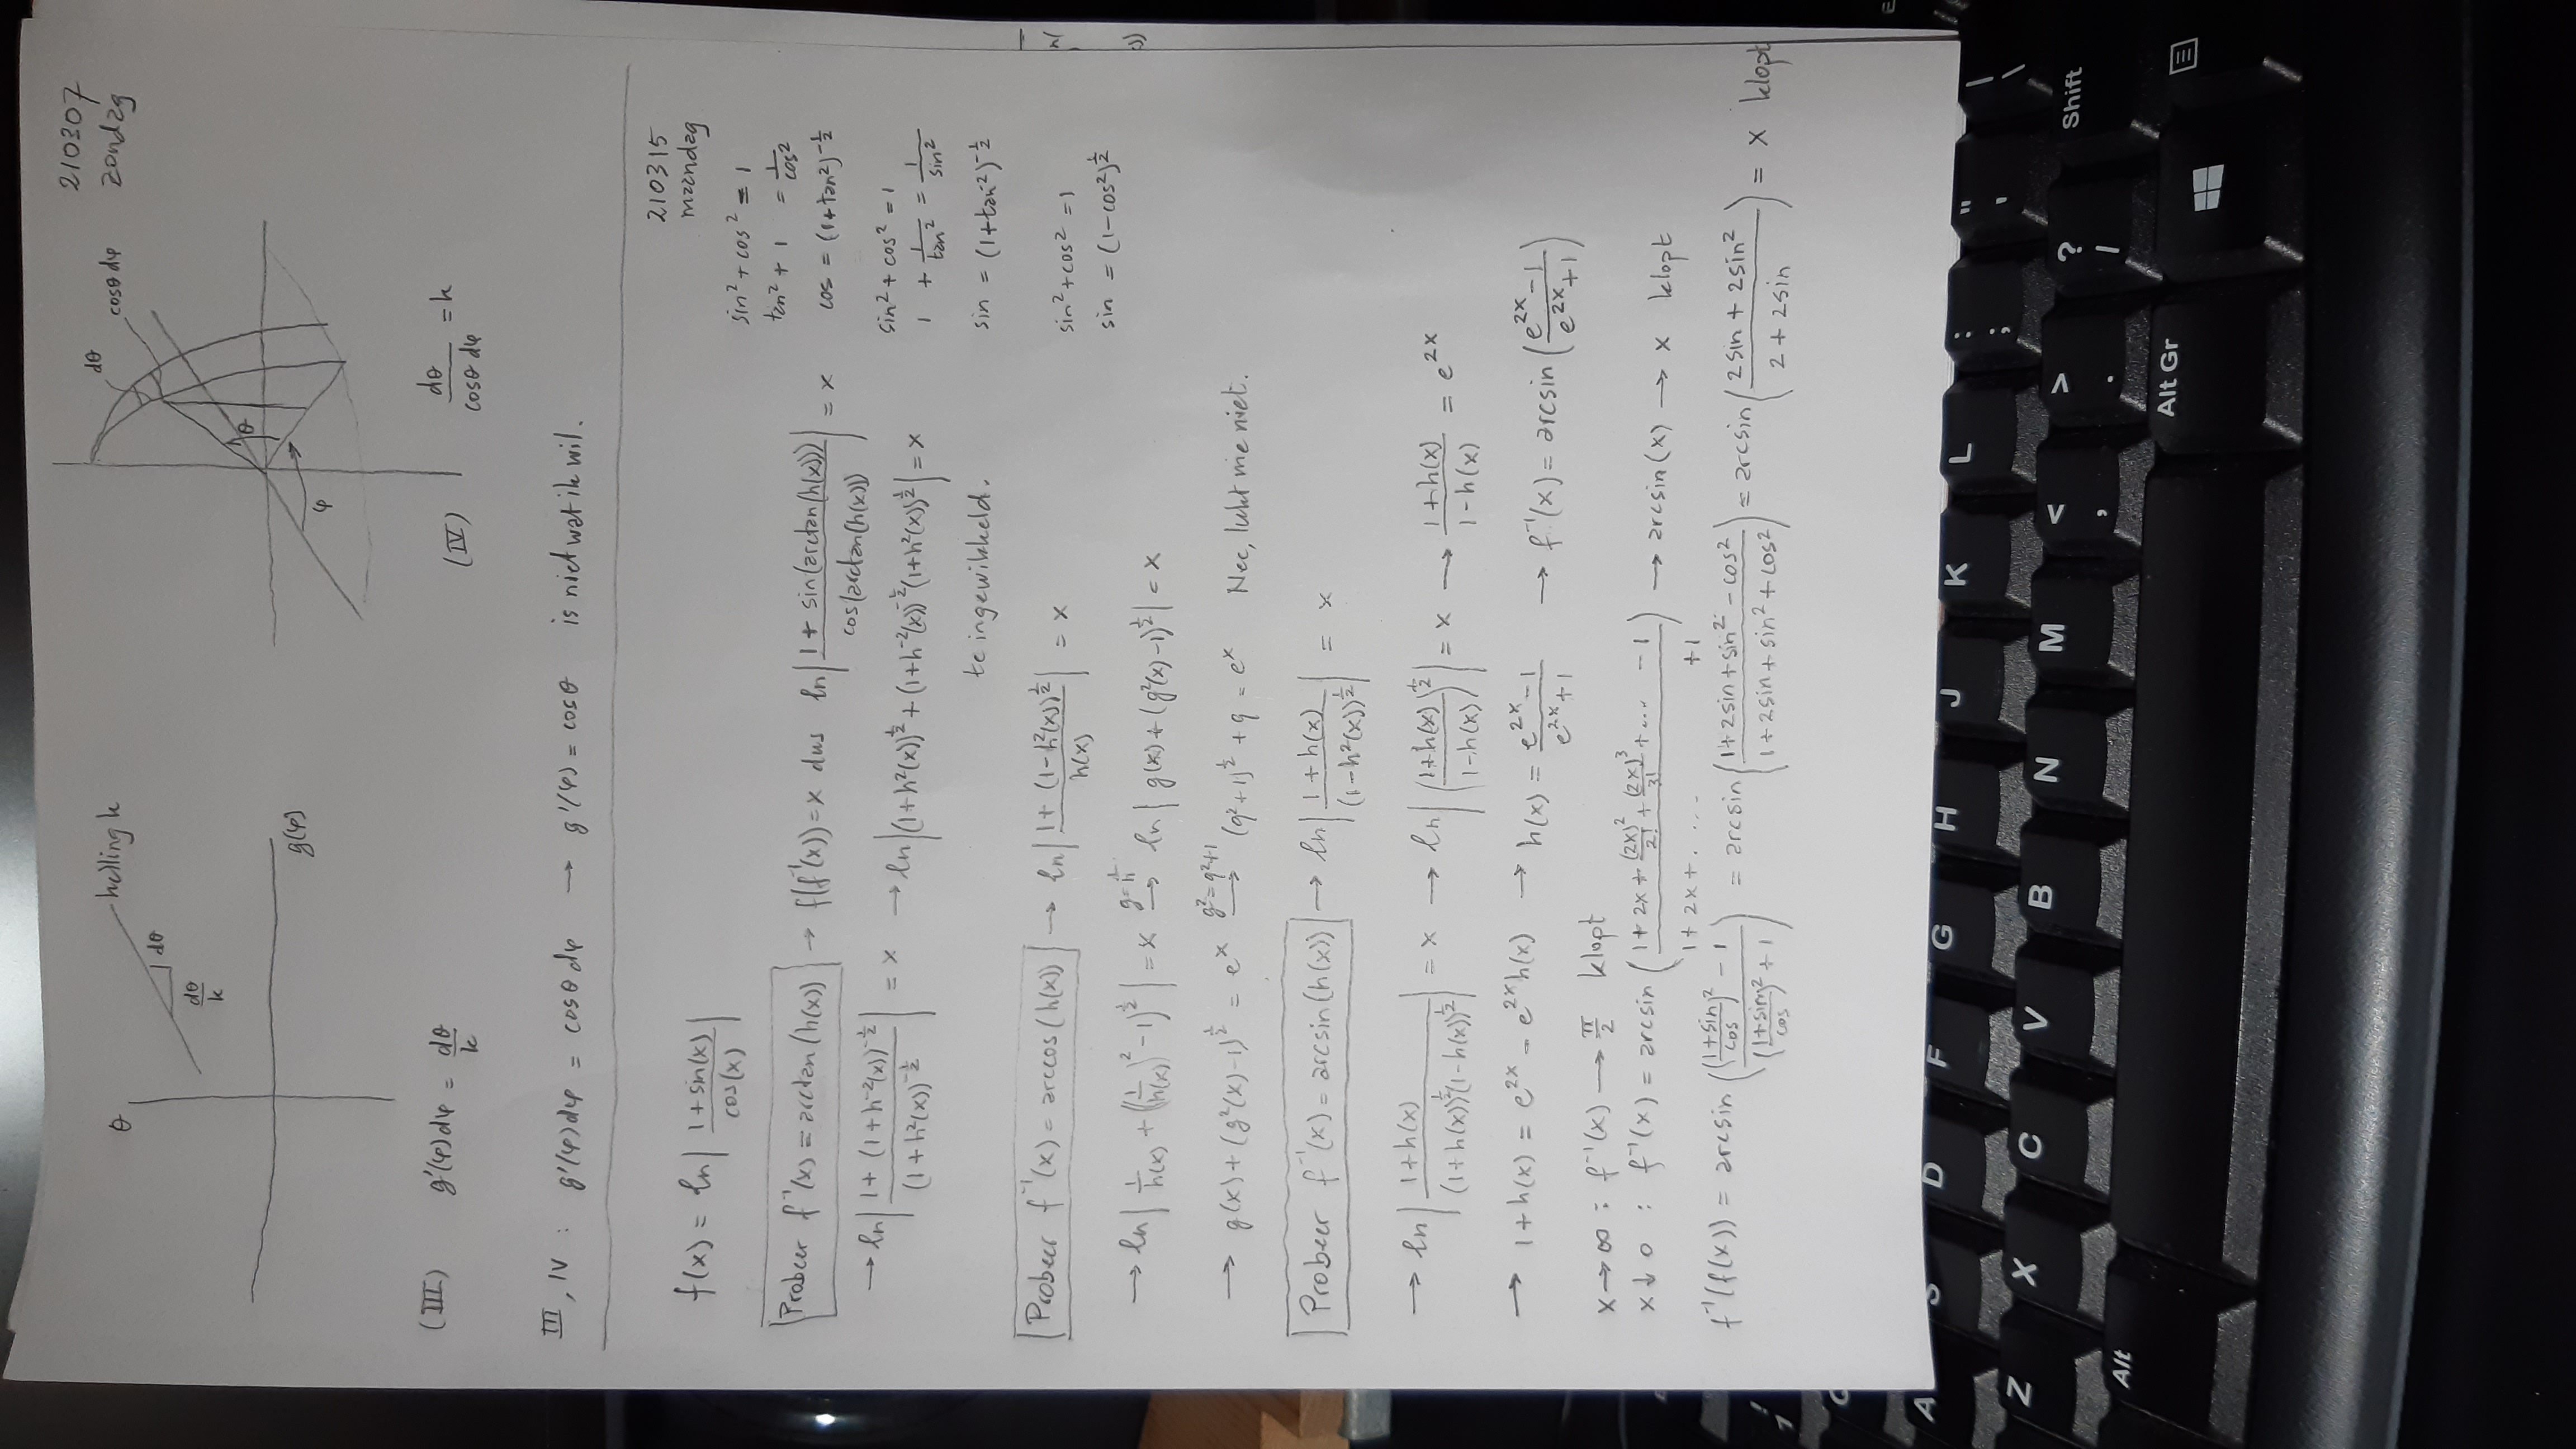 210307
zondag
θ
helling k
dθ
dθ/k
g(φ)
dθ
cosθ dφ
θ
φ
(III) g'(φ)dφ = dθ/k
(IV) dθ/(cosθ dφ) = k
III, IV : g'(φ)dφ = cosθ dφ → g'(φ) = cosθ is niet wat ik wil.
210315
maandag
f(x) = ln| (1+sin(x))/cos(x) |
sin² + cos² = 1
tan² + 1 = 1/cos²
cos = (1+tan²)^-½
Probeer f⁻¹(x) = arctan(h(x)) → f(f⁻¹(x)) = x dus ln| (1 + sin(arctan(h(x))))/cos(arctan(h(x))) | = x
→ ln| (1 + (1+h⁻²(x))^-½)/(1+h²(x))^-½ | = x → ln|(1+h²(x))^½ + (1+h⁻²(x))^-½(1+h²(x))^½| = x
sin² + cos² = 1
1 + 1/tan² = 1/sin²
sin = (1+tan⁻²)^-½
te ingewikkeld.
Probeer f⁻¹(x) = arccos(h(x)) → ln| (1 + (1-h²(x))^½)/h(x) | = x
sin²+cos² = 1
sin = (1-cos²)^½
→ ln| 1/h(x) + ((1/h(x))² -1)^½ | = x g=1/h → ln| g(x) + (g²(x)-1)^½ | = x
→ g(x) + (g²(x)-1)^½ = e^x g²=q²+1 → (q²+1)^½ + q = e^x Nee, lukt me niet.
Probeer f⁻¹(x) = arcsin(h(x)) → ln| (1+h(x))/(1-h²(x))^½ | = x
→ ln| (1+h(x))/((1+h(x))^½(1-h(x))^½) | = x → ln| ((1+h(x))/(1-h(x)))^½ | = x → (1+h(x))/(1-h(x)) = e^2x
→ 1+h(x) = e^2x - e^2x h(x) → h(x) = (e^2x -1)/(e^2x +1) → f⁻¹(x) = arcsin((e^2x -1)/(e^2x +1))
x → ∞ : f⁻¹(x) → π/2 klopt
x ↓ 0 : f⁻¹(x) = arcsin((1 + 2x + (2x)²/2! + (2x)³/3! + ... -1)/(1 + 2x + .... +1)) → arcsin(x) → x klopt
f⁻¹(f(x)) = arcsin((((1+sin)/cos)² - 1)/(((1+sin)/cos)² + 1)) = arcsin((1+2sin+sin²-cos²)/(1+2sin+sin²+cos²)) = arcsin((2sin + 2sin²)/(2 + 2sin)) = x klopt
A S D F G H J K L : ; " ' | \
Z X C V B N M < , > . ? / Shift
Alt Alt Gr